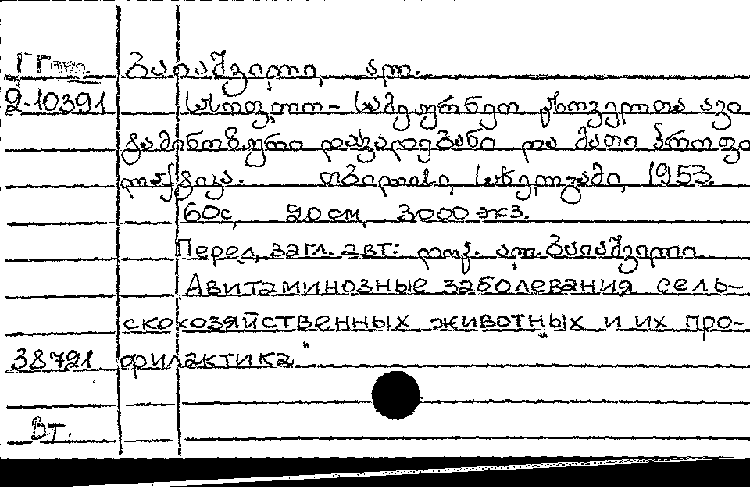 ბაიაშვილი, ალ.
2-10391 სასოფლო-სამეურნეო ცხოველთა ავი
ტამინოზური დაავადებანი და მათი პროფი
ლაქტიკა. თბილისი, სახელგამი, 1953.
60с, 20 см, 3000 экз.
Перед загл. авт: დოც. ალ. ბაიაშვილი
Авитаминозные заболевания сель-
скохозяйственных животных и их про-
38721 филактика"
Вт.